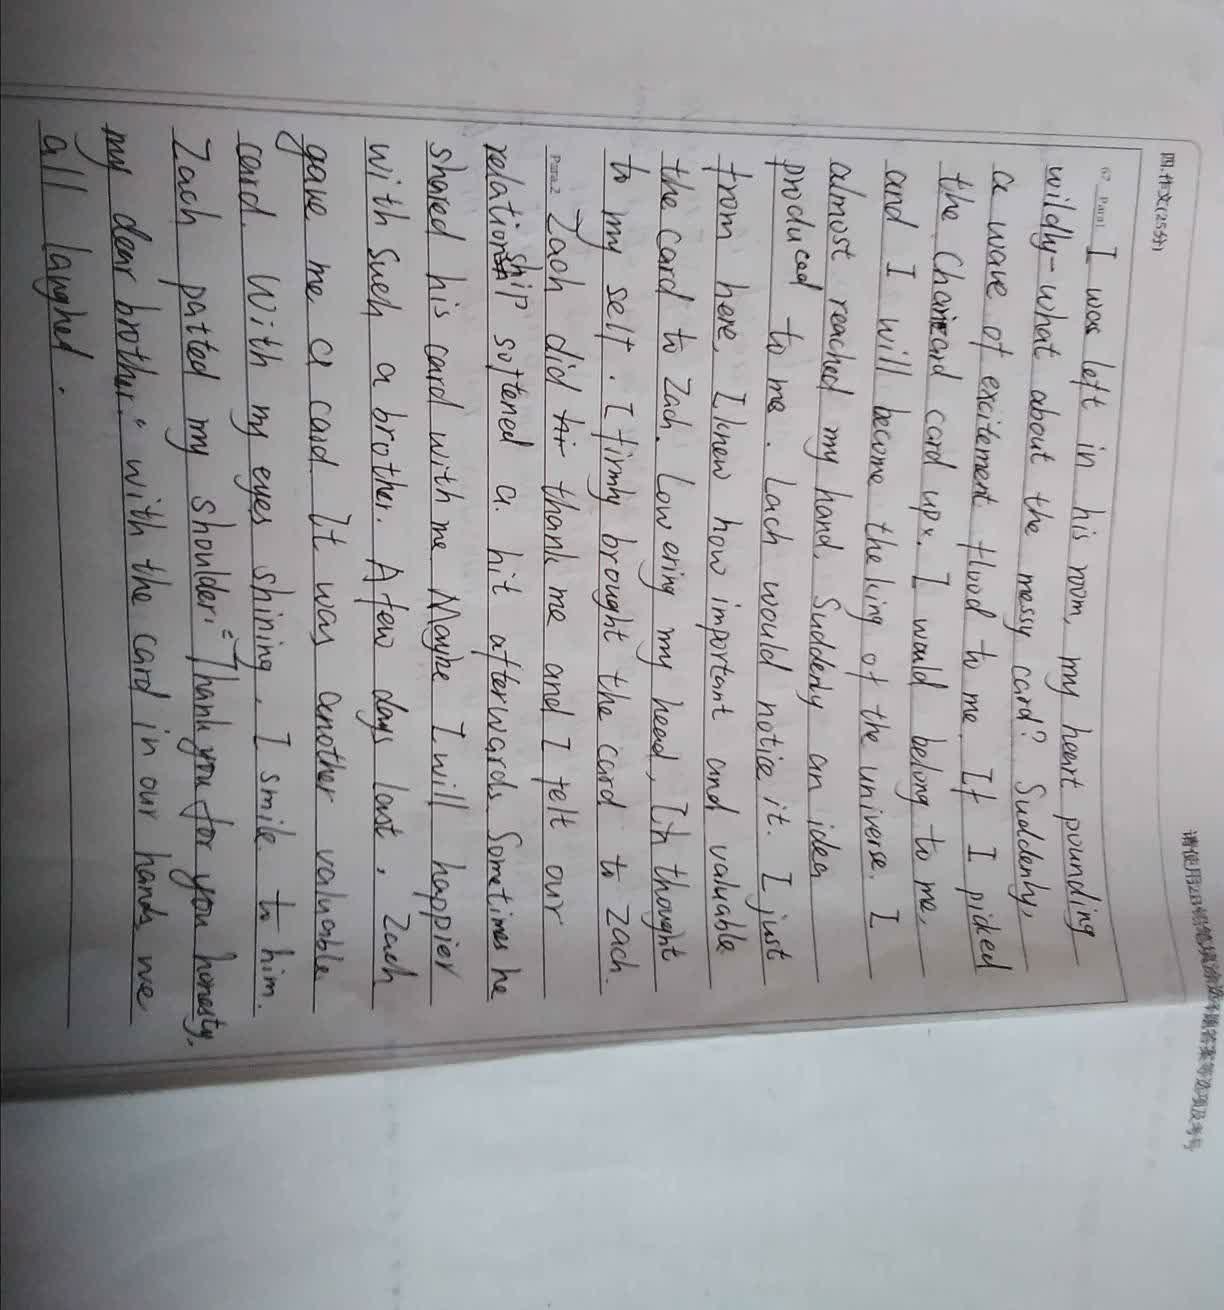 请使用2B铅笔填涂选择题答案等选项及考号
四.作文(25分)
67 Para1 I was left in his room, my heart pounding
wildly-what about the messy card? Suddenly,
a wave of excitement flood to me. If I picked
the Charizard card up. I would belong to me,
and I will become the king of the universe. I
almost reached my hand. Suddenly an idea
produced to me. Lach would notice it. I just
from here, I knew how important and valuable
the card to Zach. Lowering my head, I thought
to my self. I firmly brought the card to Zach.
Para2 Zach did thank me and I felt our
relationship softened a hit afterwards. Sometimes he
shared his card with me. Maybe I will happier
with such a brother. A few days last, Zach
gave me a card. It was another valuable
card. With my eyes shining, I smile to him.
Zach patted my shoulder: "Thank you for you honesty,
my dear brother." with the card in our hands we
all laughed.